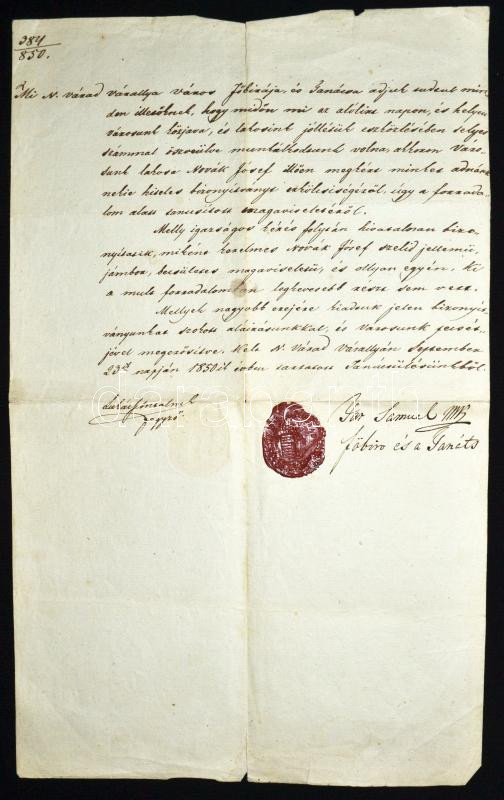 384
850.
Mi N. Várad Várallya Város Főbirája, és Tanácsa adjuk tudtul min
den illetőknek, hogy midőn mi az alólirt napon, és helyen
városunk közjava, és lakosink jólléte eszközlésében
számmal öszveülve munkálkodtunk volna, akkoron Váro-
sunk lakosa Novák Jósef illően megkért minket adnánk
nekie hiteles bizonyítványt erkölcsiségéről úgy a forrada-
lom alatt tanusított magaviseletéről.
Melly igazságos kérés folytán hivatalosan bizo-
nyítjuk, miként kérelmes Novák Jósef szelid jellemű,
jámbor, becsületes magaviseletű, és ollyan egyén, ki
a mult forradalomban legkevesebb részt sem vett.
Mellyek nagyobb erejére kiadtuk jelen bizonyít
ványunkat szokott aláirásunkkal, és Városunk pecsé-
tjével megerősítve. Kelt N. Várad Várallyán September
23ik napján 1850ik évben tartatott Tanácsülésünkből.
jegyző
Samuel
főbiro és a Tanáts
darabanth